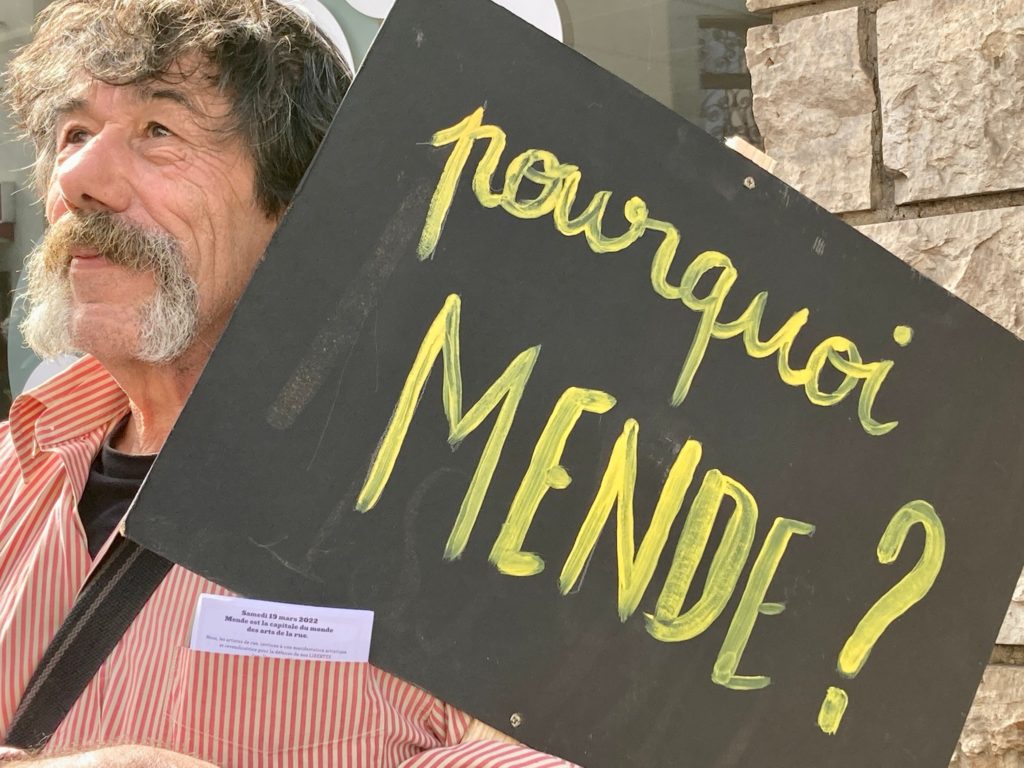 pourquoi
MENDE ?
Samedi 19 mars 2022
Mende est la capitale du monde
des arts de la rue.
Nous, les artistes de rue, invitons à une manifestation artistique
et revendicative pour la défense de nos LIBERTÉS